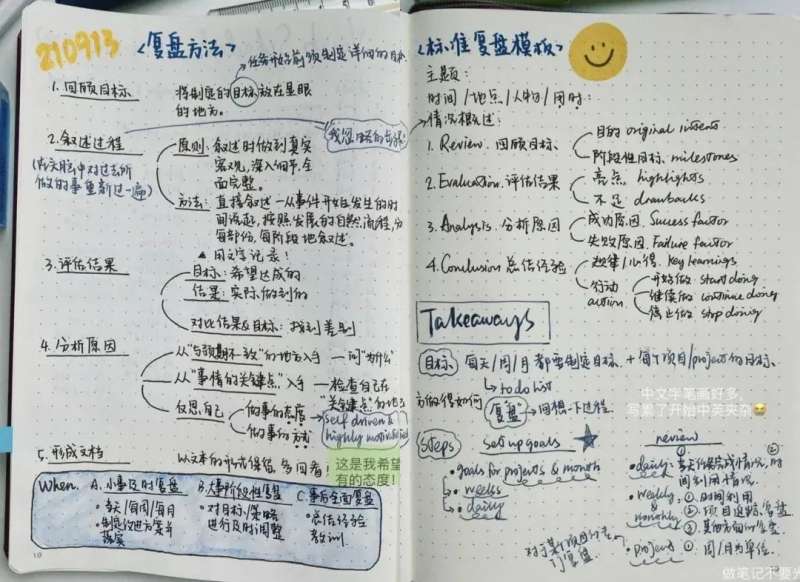 210913
《复盘方法》
任务开始前须制定详细的目标
1. 回顾目标
将制定的目标放在显眼
的地方。
我忽略的步骤
2. 叙述过程
(在大脑中对过去所
做的事重新过一遍)
原则: 叙述时做到真实
客观,深入细节,全
面完整。
方法: 直接叙述—从事件开始发生的时
间说起,按照发展的自然流程,分
每部份,每阶段地叙述。
▲ 用文字记录!
3. 评估结果
目标: 希望达成的
结果: 实际做到的
对比结果&目标: 找到差别
4. 分析原因
从“与预期不一致”的地方入手 — 问“为什么”
从“事情的关键点”入手 — 检查自己在
“关键点”的地位
反思自己
做事的态度
做事的方式
self driven &
highly motivated
5. 形成文档
以文本的形式保留,多回看!
这是我希望
有的态度!
When.
A. 小事及时复盘
• 每天/每周/每月
• 制定改进方案并
落实
B. 大事阶段性复盘
• 对目标/策略
进行及时调整
C. 事后全面复盘
• 总结经验
教训
10
《标准复盘模板》
主题:
时间/地点/人物/用时:
情况概述:
1. Review. 回顾目标
目的 original intents
阶段性目标. milestones
2. Evaluation. 评估结果
亮点. highlights
不足 drawbacks
3. Analysis. 分析原因
成功原因. Success factor
失败原因. Failure factor
4. Conclusion 总结经验
规律/心得. Key learnings
行动
action
开始做. start doing
继续做 continue doing
停止做 stop doing
Takeaways
目标
每天/周/月都要制定目标. + 每个项目/project的目标.
to do list
中文字笔画好多,
写累了开始中英夹杂😂
方做得如何
“复盘” 回想一下过程.
Steps
set up goals
• goals for projects & month
• weeks
• daily
review
• daily: 每天的完成情况,时
间利用情况.
• weekly &
monthly
① 时间利用
② 项目进略.复盘
③ 其他方面的复盘
• project ① 周/月为单位.
做笔记不要光